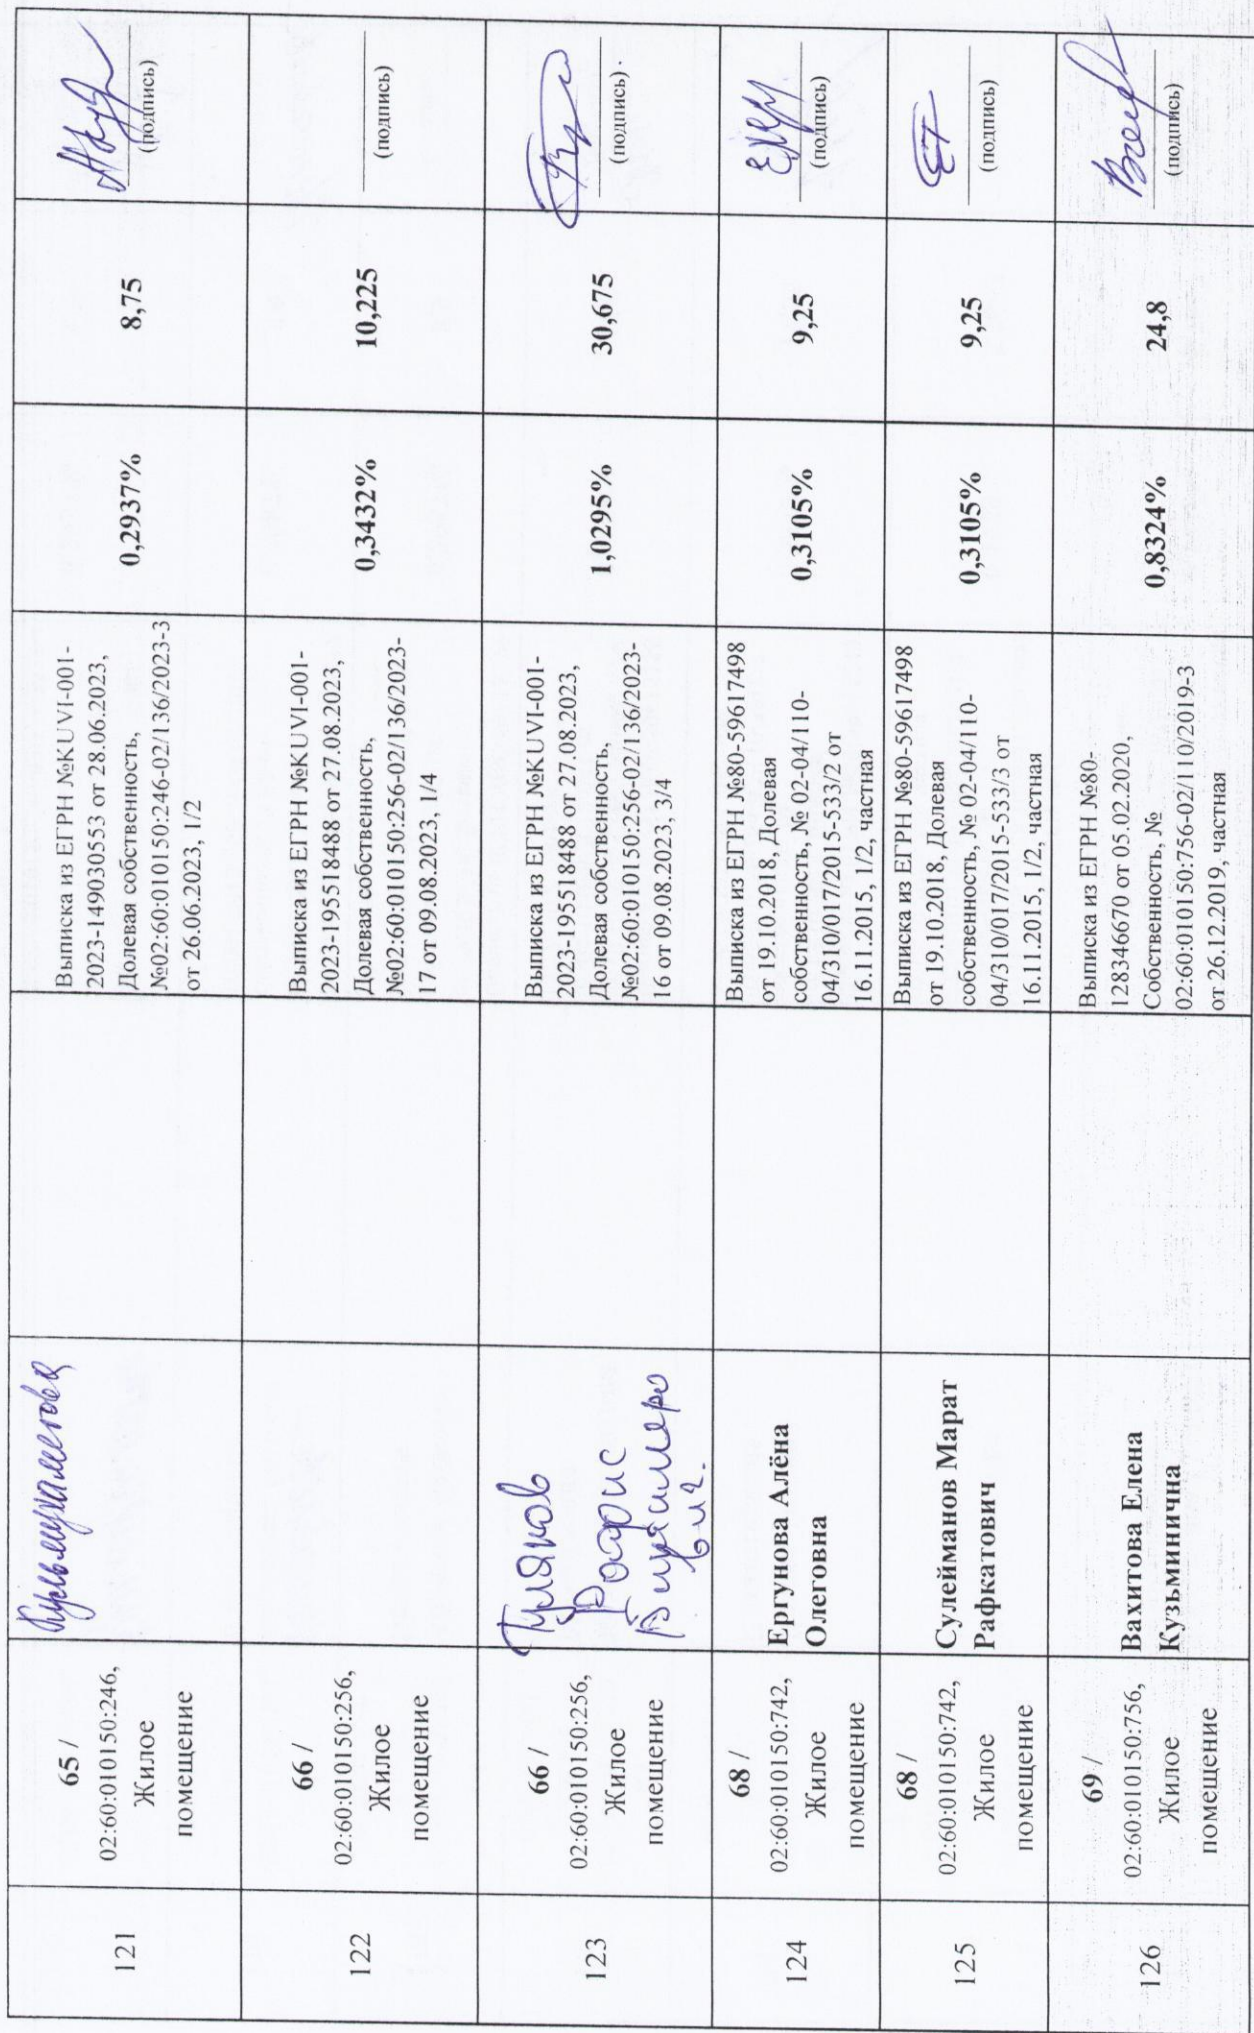 121
65 /
02:60:010150:246,
Жилое
помещение
Выписка из ЕГРН №KUVI-001-
2023-149030553 от 28.06.2023,
Долевая собственность,
№02:60:010150:246-02/136/2023-3
от 26.06.2023, 1/2
0,2937%
8,75
(подпись)
122
66 /
02:60:010150:256,
Жилое
помещение
Выписка из ЕГРН №KUVI-001-
2023-195518488 от 27.08.2023,
Долевая собственность,
№02:60:010150:256-02/136/2023-
17 от 09.08.2023, 1/4
0,3432%
10,225
(подпись)
123
66 /
02:60:010150:256,
Жилое
помещение
Выписка из ЕГРН №KUVI-001-
2023-195518488 от 27.08.2023,
Долевая собственность,
№02:60:010150:256-02/136/2023-
16 от 09.08.2023, 3/4
1,0295%
30,675
(подпись)
124
68 /
02:60:010150:742,
Жилое
помещение
Ергунова Алёна
Олеговна
Выписка из ЕГРН №80-59617498
от 19.10.2018, Долевая
собственность, № 02-04/110-
04/310/017/2015-533/2 от
16.11.2015, 1/2, частная
0,3105%
9,25
(подпись)
125
68 /
02:60:010150:742,
Жилое
помещение
Сулейманов Марат
Рафкатович
Выписка из ЕГРН №80-59617498
от 19.10.2018, Долевая
собственность, № 02-04/110-
04/310/017/2015-533/3 от
16.11.2015, 1/2, частная
0,3105%
9,25
(подпись)
126
69 /
02:60:010150:756,
Жилое
помещение
Вахитова Елена
Кузьминична
Выписка из ЕГРН №80-
128346670 от 05.02.2020,
Собственность, №
02:60:010150:756-02/110/2019-3
от 26.12.2019, частная
0,8324%
24,8
(подпись)